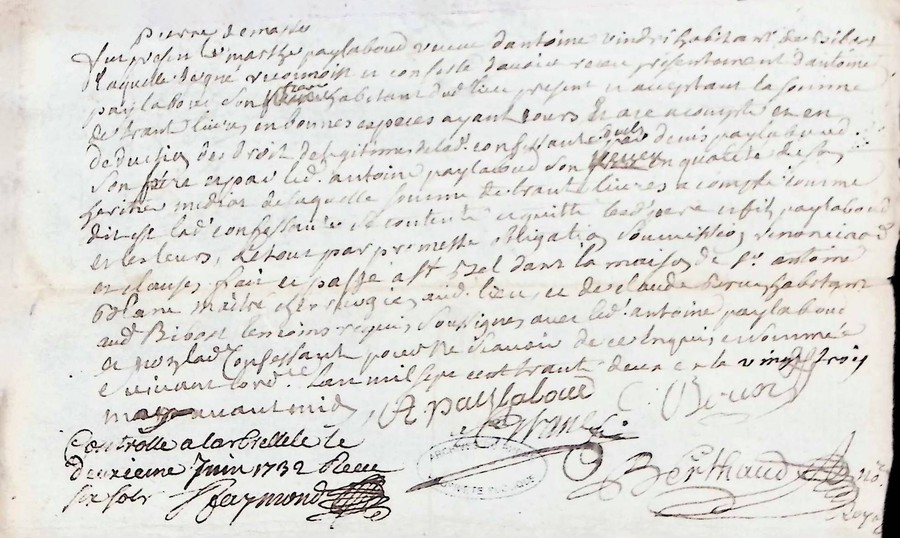 Pierre demasse
fut presente marthe paylaboud veuve d'antoine vindri habitant de Ribes
laquelle de gre reconnoit et confesse davoir receu presentement d'antoine
paylaboud son frere habitant dud. lieu present et acceptant la somme
de trante livres en bonnes especes ayant cours et ace acompte et en
deduction des droit de legitime de lad. confessante deub par denis paylaboud
son pere et par led. antoine paylaboud son en qualite de son
heritier mediat de laquelle somme de trante livres a compte comme
dit est lad. confessante se contente et quitte lesd. pere et fil paylaboud
et les leurs, le tout par promesse obligation soumission renonciaon
et clauses, fait et passé a st dans la maison de Sr. antoine
blanc maitre chirurgien aud. lieu, et de claude brun habitant
aud Ribes temoins requis soussignes avec led. antoine paylaboud
et non lad. Confessante pour ne scavoir de ce enquise et sommée
suivant lord.ce Lan mil sept cent trante deux et le vingt trois
may avant midy, A paylaboud C Brun
le Blanc
Controlle a largentiere le
deuxieme Juin 1732 Receu
six sols Raymond Berthaud no.
Royal